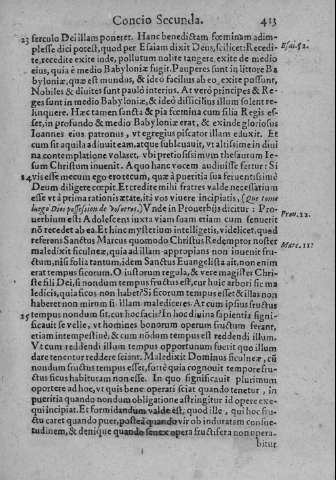 Concio Secunda. 413
23 ferculo Dei illam poneret. Hanc benedictam fœminam adim-
plesse dici potest, quod per Esaiam dixit Deus, scilicet: Recedi- Esai. 52.
te, recedite exite inde, pollutum nolite tangere, exite de medio
eius, quia è medio Babyloniæ fugit. Pauperes sunt in littore Ba
byloniæ, quæ est mundus, & ideò facilius ab eo exite possunt,
Nobiles & diuites sunt paulò interius. At verò principes & Re-
ges sunt in medio Babyloniæ, & ideò difficilius illum solent re-
linquere. Hæc tamen sancta & pia fœmina cum filia Regis es-
set, in profundo & medio Babyloniæ erat, & exinde gloriosus
Ioannes eius patronus, vt egregius piscator illam eduxit. Et
cum sit aquila adiuuit eam, atque subleuauit, vt altissime in diui
na contemplatione volaret, vbi pretiosissimum thesaurum Ie-
sum Christum inuenit. A quo hanc vocem audiuisse fertur: Si
24 vis esse mecum ego ero tecum, quæ à pueritia sua feruentissimè
Deum diligere cœpit. Et credite mihi fratres valde necessarium
esse vt à prima rationis ætate, ità vos viuere incipiatis, (Que tome
luego Dios possession de vosotros.) Vnde in Prouerbijs dicitur: Pro- Prou. 22.
uerbium est: Adolescens iuxta viam suam etiam cum senuerit
nõ recedet ab ea. Et hinc mysterium intelligetis, videlicet, quod
referens Sanctus Marcus quomodo Christus Redemptor noster Marc. 11.
maledixit ficulneæ, quia ad illam appropians non inuenit fru-
ctum, nisi folia tantum, idem Sanctus Euangelista ait, non enim
erat tempus ficorum. O iustorum regula, & vere magister Chri-
ste fili Dei, si nondum tempus fructus est, cur huic arbori sic ma
ledicis, quia ficus non habet? Si ficorum tempus esset & illas non
haberet non mirum si illam malediceres. At cum ipsius fructus
25 tempus nondum sit, cur hoc facis? In hoc diuina sapientia signi-
ficauit se velle, vt homines bonorum operum fructum ferant,
etiam intempestiuè, & cum nondum tempus est reddendi illum.
Vt cum reddendi illum tempus opportunum fuerit quo illum
dare tenentur reddere sciant. Maledixit Dominus ficulneæ, cũ
nondum fructus tempus esset, fortè quia cognouit tempore fru-
ctus ficus habituram non esse. In quo significauit plurimum
oportere ad hoc, vt quis bene operari sciat quando tenetur, in
pueritia quando nondum obligatione astringitur id opere exe-
qui incipiat. Et formidandum valde est, quod ille, qui hoc fru-
ctu caret quando puer, posteà quando vir ob induratam consue-
tudinem, & denique quando senex opera fructifera non opera-
bitur